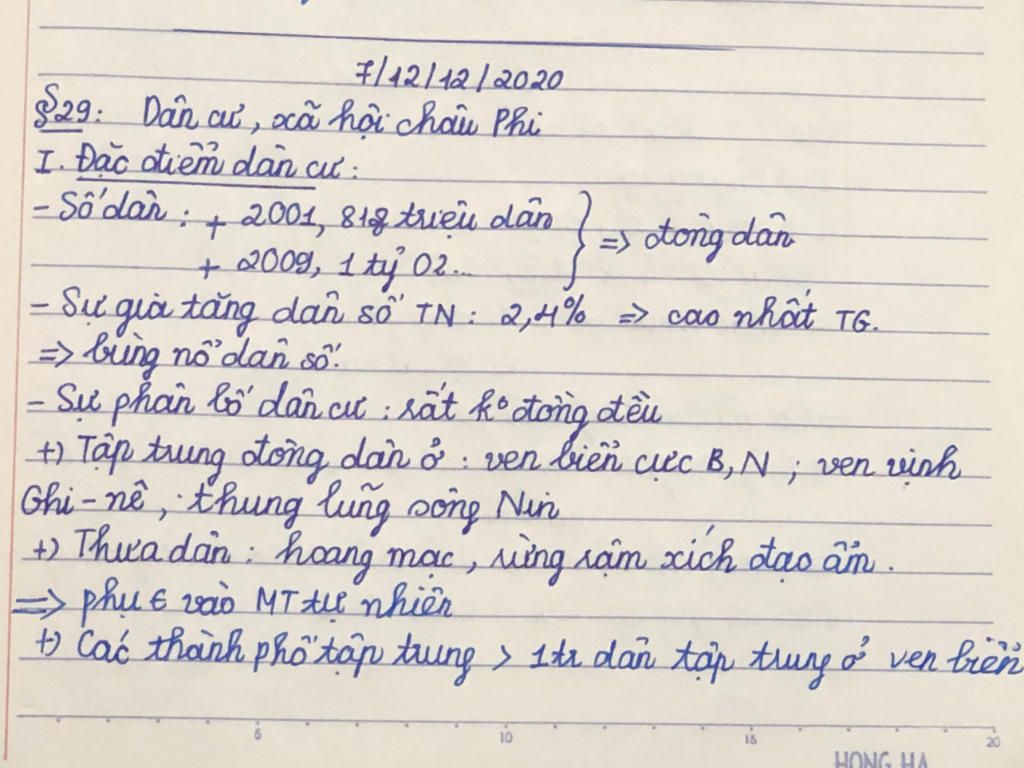 7/12/12/2020
§29: Dân cư, xã hội châu Phi
I. Đặc điểm dân cư:
- Số dân: + 2001, 818 triệu dân } => đông dân
+ 2009, 1 tỷ 02...
- Sự gia tăng dân số TN: 2,4% => cao nhất TG.
=> bùng nổ dân số.
- Sự phân bố dân cư: rất k° đồng đều
+) Tập trung đông dân ở: ven biển cực B, N; ven vịnh
Ghi-nê, thung lũng sông Nin
+) Thưa dân: hoang mạc, rừng rậm xích đạo ẩm.
=> phụ € vào MT tự nhiên
+) Các thành phố tập trung > 1tr dân tập trung ở ven biển
5 10 15 20
HONG HA